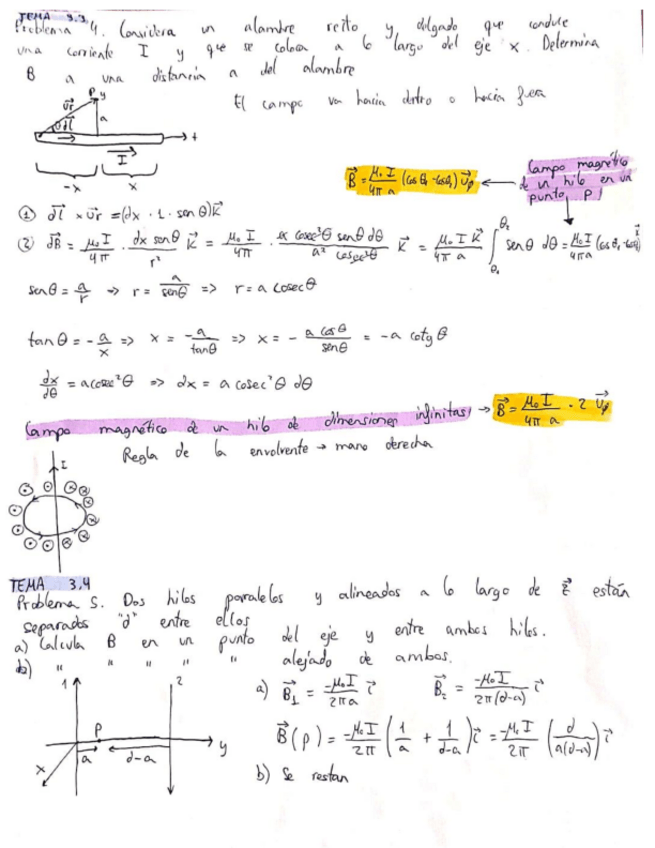 TEMA 3.3.
Problema 4. Considera un alambre recto y delgado que conduce
una corriente I y que se coloca a lo largo del eje x. Determina
B a una distancia a del alambre
El campo va hacia dentro o hacia fuera
P y
u⃗r
θ dl⃗
a
I⃗
-x x
B⃗ = μ₀ I / 4π a (cos θ₁ - cos θ₂) u⃗φ
Campo magnético
de un hilo en un
punto P
① dl⃗ × u⃗r = (dx · 1 · sen θ) k⃗
② dB⃗ = μ₀ I / 4π · dx sen θ / r² k⃗ = μ₀ I / 4π · a cosec² θ sen θ dθ / a² cosec² θ k⃗ = μ₀ I k⃗ / 4π a ∫ θ₁ θ₂ sen θ dθ = μ₀ I / 4π a (cos θ₁ - cos θ₂)
sen θ = a/r ⇒ r = a / sen θ ⇒ r = a cosec θ
tan θ = - a/x ⇒ x = -a / tan θ ⇒ x = - a cos θ / sen θ = -a cotg θ
dx/dθ = a cosec² θ ⇒ dx = a cosec² θ dθ
Campo magnético de un hilo de dimensiones infinitas → B⃗ = μ₀ I / 4π a · 2 u⃗φ
Regla de la envolvente → mano derecha
I
TEMA 3,4
Problema 5. Dos hilos paralelos y alineados a lo largo de z⃗ están
separados "d" entre ellos
a) Calcula B en un punto del eje y entre ambos hilos.
b) " " " " " alejado de ambos.
1 2
P
a d-a y
x
a) B⃗₁ = -μ₀ I / 2π a i⃗ B⃗₂ = -μ₀ I / 2π (d-a) i⃗
B⃗ (P) = -μ₀ I / 2π (1/a + 1/d-a) i⃗ = -μ₀ I / 2π (d / a(d-a)) i⃗
b) Se restan